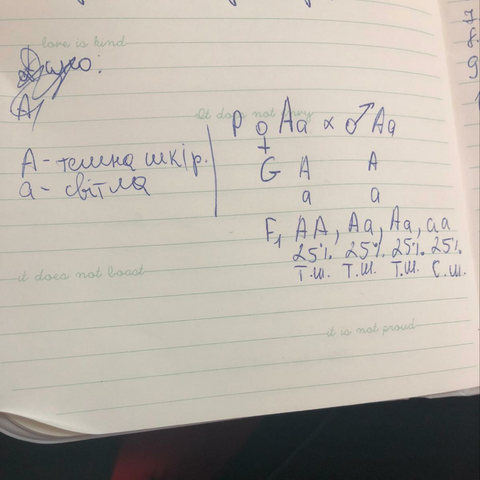 love is kind
Дано:
A,
It does not
P ♀ Aa × ♂ Aa
A - темна шкір.
a - світла
G A A
a a
F₁ AA, Aa, Aa, aa
25% 25% 25% 25%
т.ш. т.ш. т.ш. с.ш.
it does not boast
it is not proud
7.
8.
9